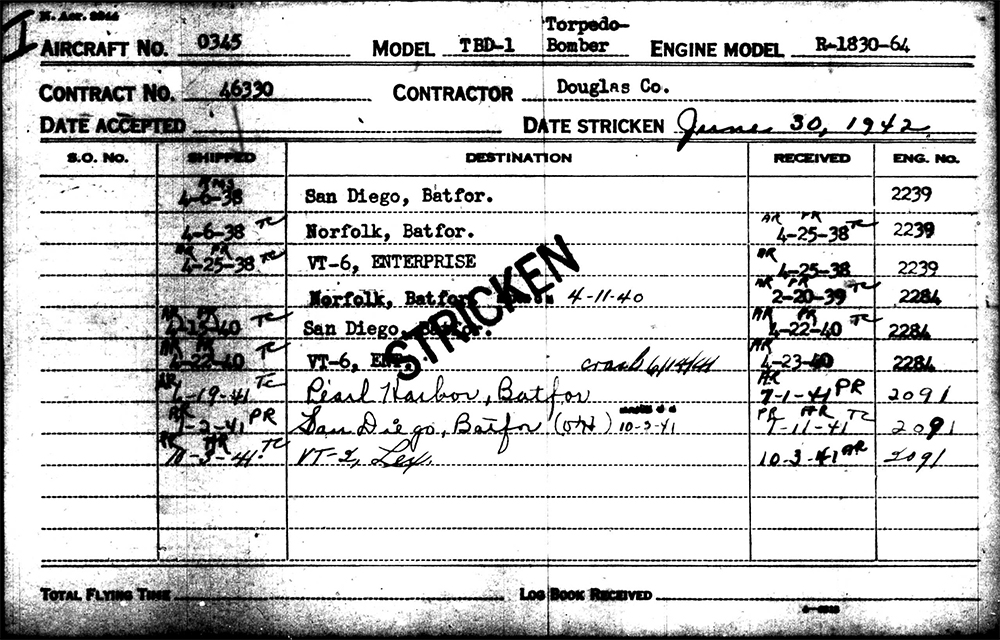 AIRCRAFT NO. 0345 MODEL TBD-1 Torpedo-Bomber ENGINE MODEL R-1830-64
CONTRACT NO. 46330 CONTRACTOR Douglas Co.
DATE ACCEPTED DATE STRICKEN June 30, 1942
S.O. NO. SHIPPED DESTINATION RECEIVED ENG. NO.
4-6-38 San Diego, Batfor. 2239
4-6-38 TC Norfolk, Batfor. AR PR 4-25-38 TC 2239
AR PR 4-25-38 TC VT-6, ENTERPRISE AR 4-25-38 2239
Norfolk, Batfor. 4-11-40 AR PR 2-20-39 TC 2284
AR PR 4-12-40 TC San Diego, Batfor. AR PR 4-22-40 TC 2284
AR PR 4-22-40 TC VT-6, ENT. crash 6/14/41 AR 4-23-40 2284
AR 6-19-41 TC Pearl Harbor, Batfor AR 7-1-41 PR 2091
AR 7-2-41 PR San Diego, Batfor (OH) 10-3-41 PR AR 7-11-41 TC 2091
PR AR 10-3-41 TC VT-2, Lex. 10-3-41 AR 2091
STRICKEN
TOTAL FLYING TIME LOG BOOK RECEIVED